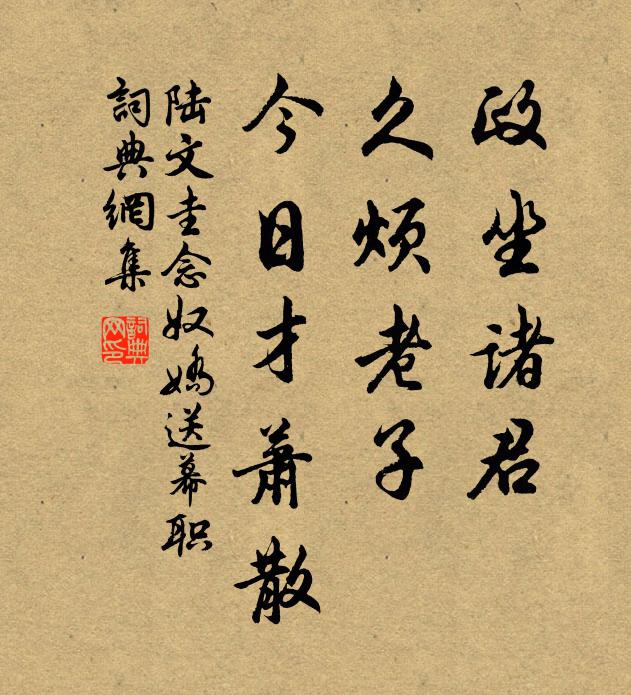 政坐诸君
久烦老子
今日才萧散
陆文圭念奴娇送幕职
詞典網集
詞典网印